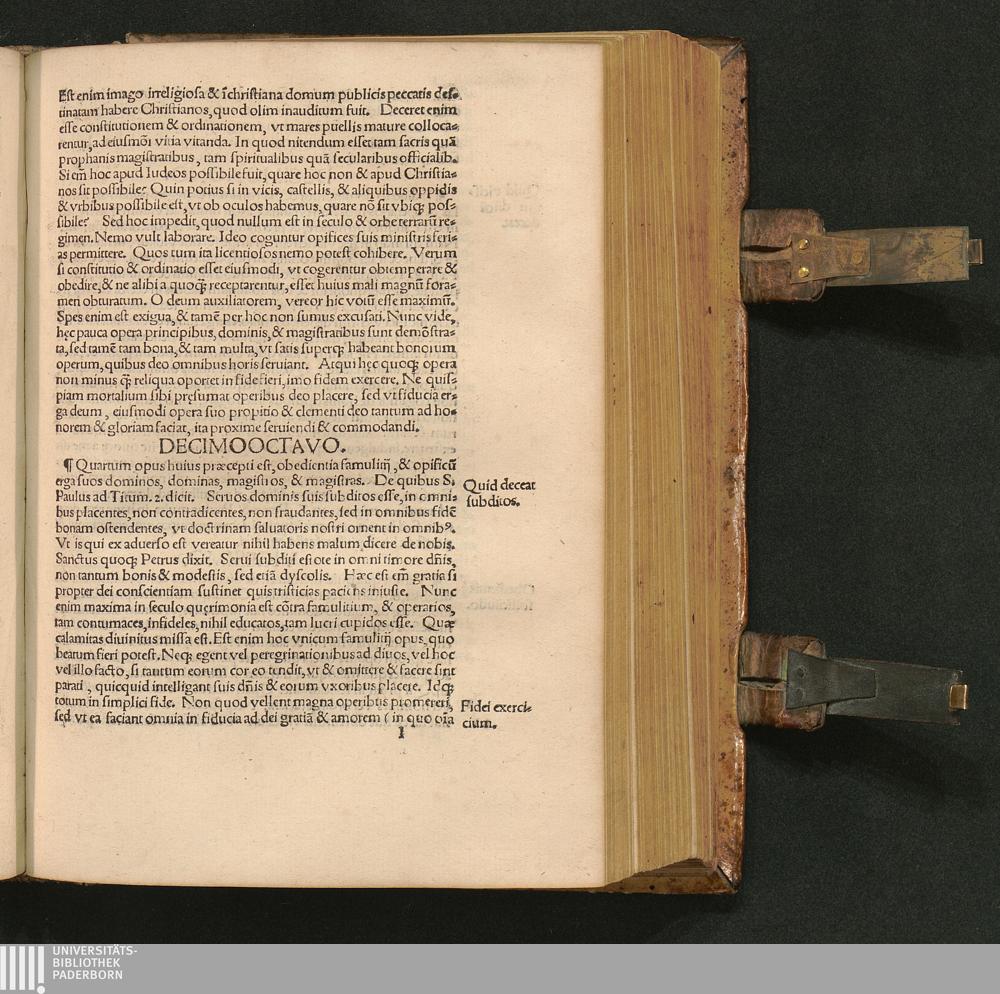 Est enim imago irreligiosa & ichristiana domum publicis peccatis des⸗
tinatam habere Christianos, quod olim inauditum fuit. Deceret enim
esse constitutionem & ordinationem, vt mares puellis mature colloca⸗
rentur, ad eiusmoi vitia vitanda. In quod nitendum esset tam sacris quā
prophanis magistratibus, tam spiritualibus quā secularibus officialib.
Si em̄ hoc apud Iudeos possibile fuit, quare hoc non & apud Christia⸗
nos sit possibile? Quin potius si in vicis, castellis, & aliquibus oppidis
& vrbibus possibile est, vt ob oculos habemus, quare nō sit vbiqꝫ pos⸗
sibile? Sed hoc impedit, quod nullum est in seculo & orbe terrarū re⸗
gimen. Nemo vult laborare. Ideo coguntur opifices suis ministris feri⸗
as permittere. Quos tum ita licentiosos nemo potest cohibere. Verum
si constitutio & ordinatio esset eiusmodi, vt cogerentur obtemperare &
obedire, & ne alibi a quoqꝫ receptarentur, esset huius mali magnū fora⸗
men obturatum. O deum auxiliatorem, vereor hic votū esse maximū.
Spes enim est exigua, & tamē per hoc non sumus excusati. Nunc vide,
hęc pauca opera principibus, dominis, & magistratibus sunt demōstra⸗
ta, sed tamē tam bona, & tam multa, vt satis superqꝫ habeant bonorum
operum, quibus deo omnibus horis seruiant. Atqui hęc quoqꝫ opera
non minus q̄ reliqua oportet in fide fieri, imo fidem exercere. Ne quis⸗
piam mortalium sibi pręsumat operibus deo placere, sed vt fiducia er⸗
ga deum, eiusmodi opera suo propitio & clementi deo tantum ad ho⸗
norem & gloriam faciat, ita proxime seruiendi & commodandi.
DECIMOOCTAVO.
¶ Quartum opus huius præcepti est, obedientia famulitij, & opificū
erga suos dominos, dominas, magistros, & magistras. De quibus S.
Paulus ad Titum. 2. dicit. Seruos dominis suis subditos esse, in omni⸗
bus placentes, non contradicentes, non fraudantes, sed in omnibus fidē
bonam ostendentes, vt doctrinam saluatoris nostri ornent in omnibꝰ.
Vt is qui ex aduerso est vereatur nihil habens malum dicere de nobis.
Sanctus quoqꝫ Petrus dixit. Serui subditi estote in omni timore dn̄is,
non tantum bonis & modestis, sed etiā dyscolis. Hæc est em̄ gratia si
propter dei conscientiam sustinet quis tristicias paciens iniuste. Nunc
enim maxima in seculo querimonia est cōtra famulitium, & operarios,
tam contumaces, infideles, nihil educatos, tam lucri cupidos esse. Quæ
calamitas diuinitus missa est. Est enim hoc vnicum famulitij opus, quo
beatum fieri potest. Neqꝫ egent vel peregrinationibus ad diuos, vel hoc
vel illo facto, si tantum eorum cor eo tendit, vt & omittere & facere sint
parati, quicquid intelligant suis dn̄is & eorum vxoribus placere. Idqꝫ
totum in simplici fide. Non quod vellent magna operibus promereri,
sed vt ea faciant omnia in fiducia ad dei gratiā & amorem (in quo oīa
I
Quid deceat
subditos.
Fidei exerci⸗
cium.
UNIVERSITÄTS-
BIBLIOTHEK
PADERBORN